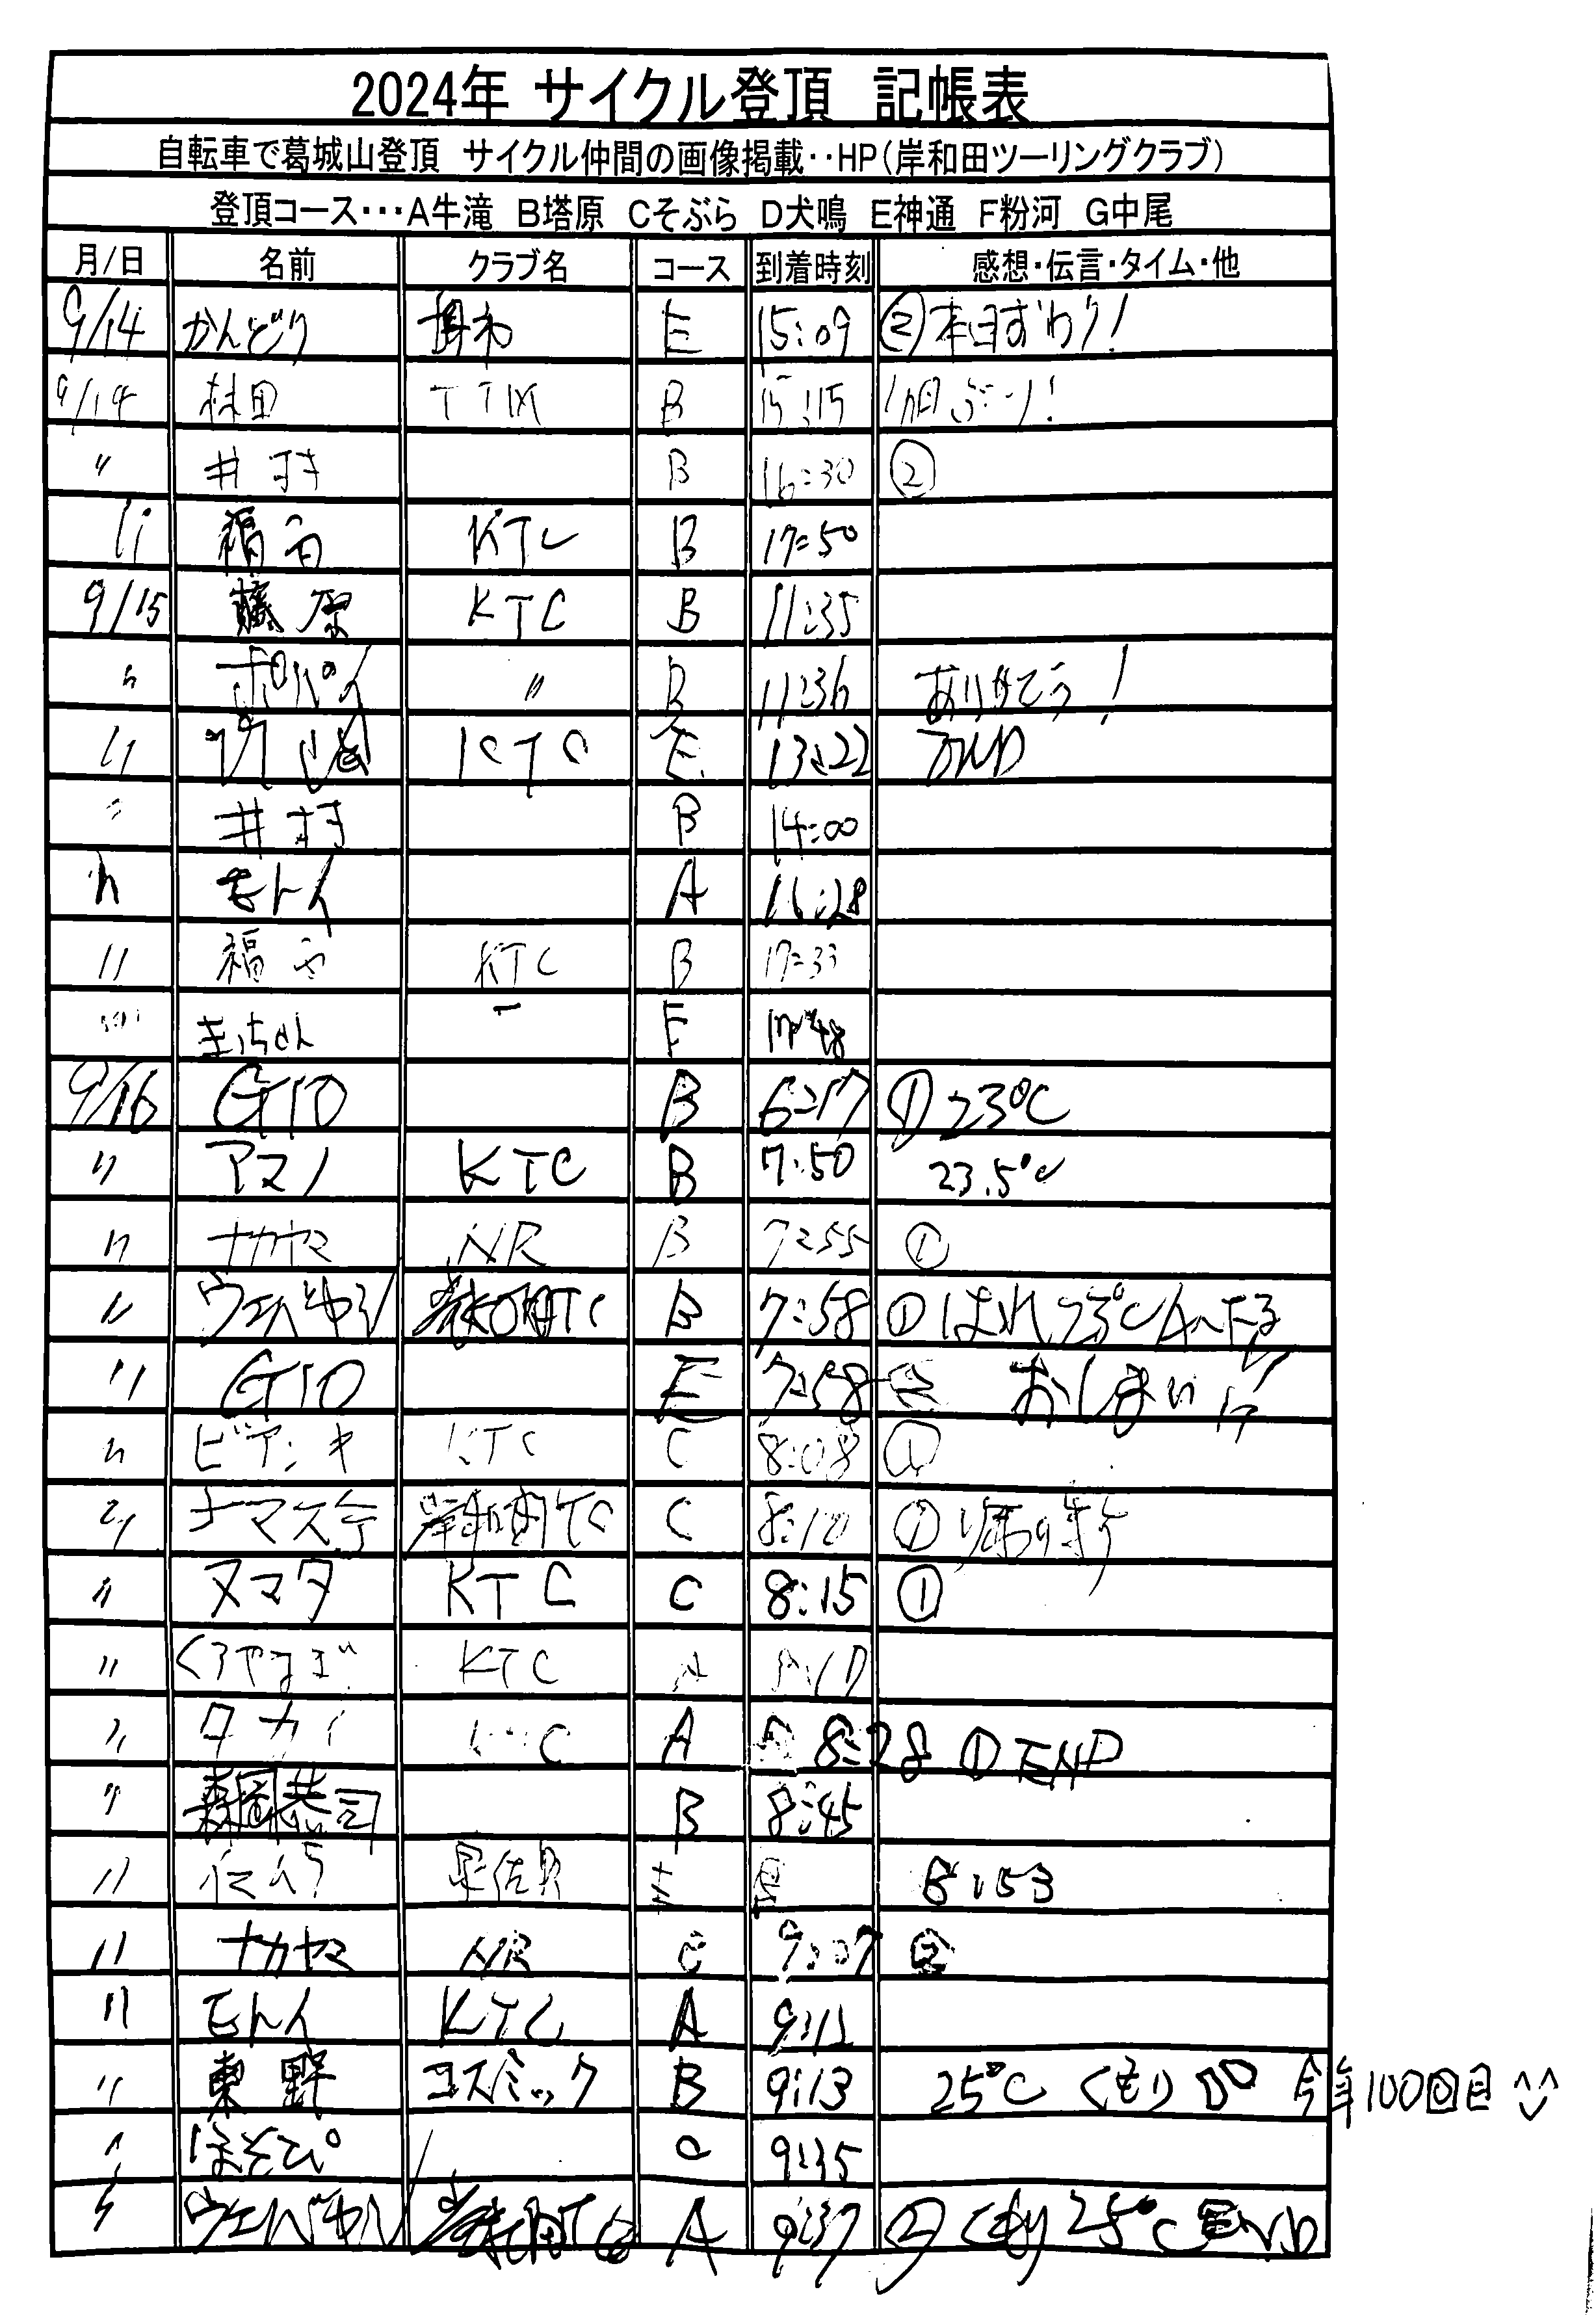 2024年 サイクル登頂 記帳表
自転車で葛城山登頂 サイクル仲間の画像掲載‥HP(岸和田ツーリングクラブ)
登頂コース・・・A牛滝 B塔原 Cそぶら D犬鳴 E神通 F粉河 G中尾
月/日 名前 クラブ名 コース 到着時刻 感想・伝言・タイム・他
9/14 かんどり E 15:09 ②本日おわり!
9/14 林田 TTM B 15:15 ぶり!
〃 井村 B 16:30 ②
〃 福 KTC B 17:50
9/15 藤原 KTC B 11:35
〃 ポパイ 〃 B 11:36 ありがとう!
〃 KTC E 13:22 END
〃 井村 B 14:00
〃 モトイ A 16:28
〃 福 KTC B 17:33
きっちゃん F 17:48
9/16 GIO B 6:17 ① 23℃
〃 アマノ KTC B 7:50 23.5℃
〃 ナカヤマ NR B 7:55 ①
〃 ウエバヤシ 岸和田TC B 7:58 ①はれ 23℃ Aへ下る
〃 GIO E 7:58 ② おしまい
〃 ビアンキ KTC C 8:08 ①
〃 ナマステ 岸和田TC C 8:10 ①
〃 ヌマタ KTC C 8:15 ①
〃 KTC A
〃 タカイ A 8:28 ① END
〃 森岡恭司 B 8:45
〃 泉佐野 8:53
〃 ナカヤマ NR C 9:07 ②
〃 モトイ KTC A 9:12
〃 東野 コスミック B 9:13 25℃ くもり 今年100回目^^
〃 ほそぴ C 9:35
〃 ウエバヤシ 岸和田TC A 9:37 ②くもり 25℃ END